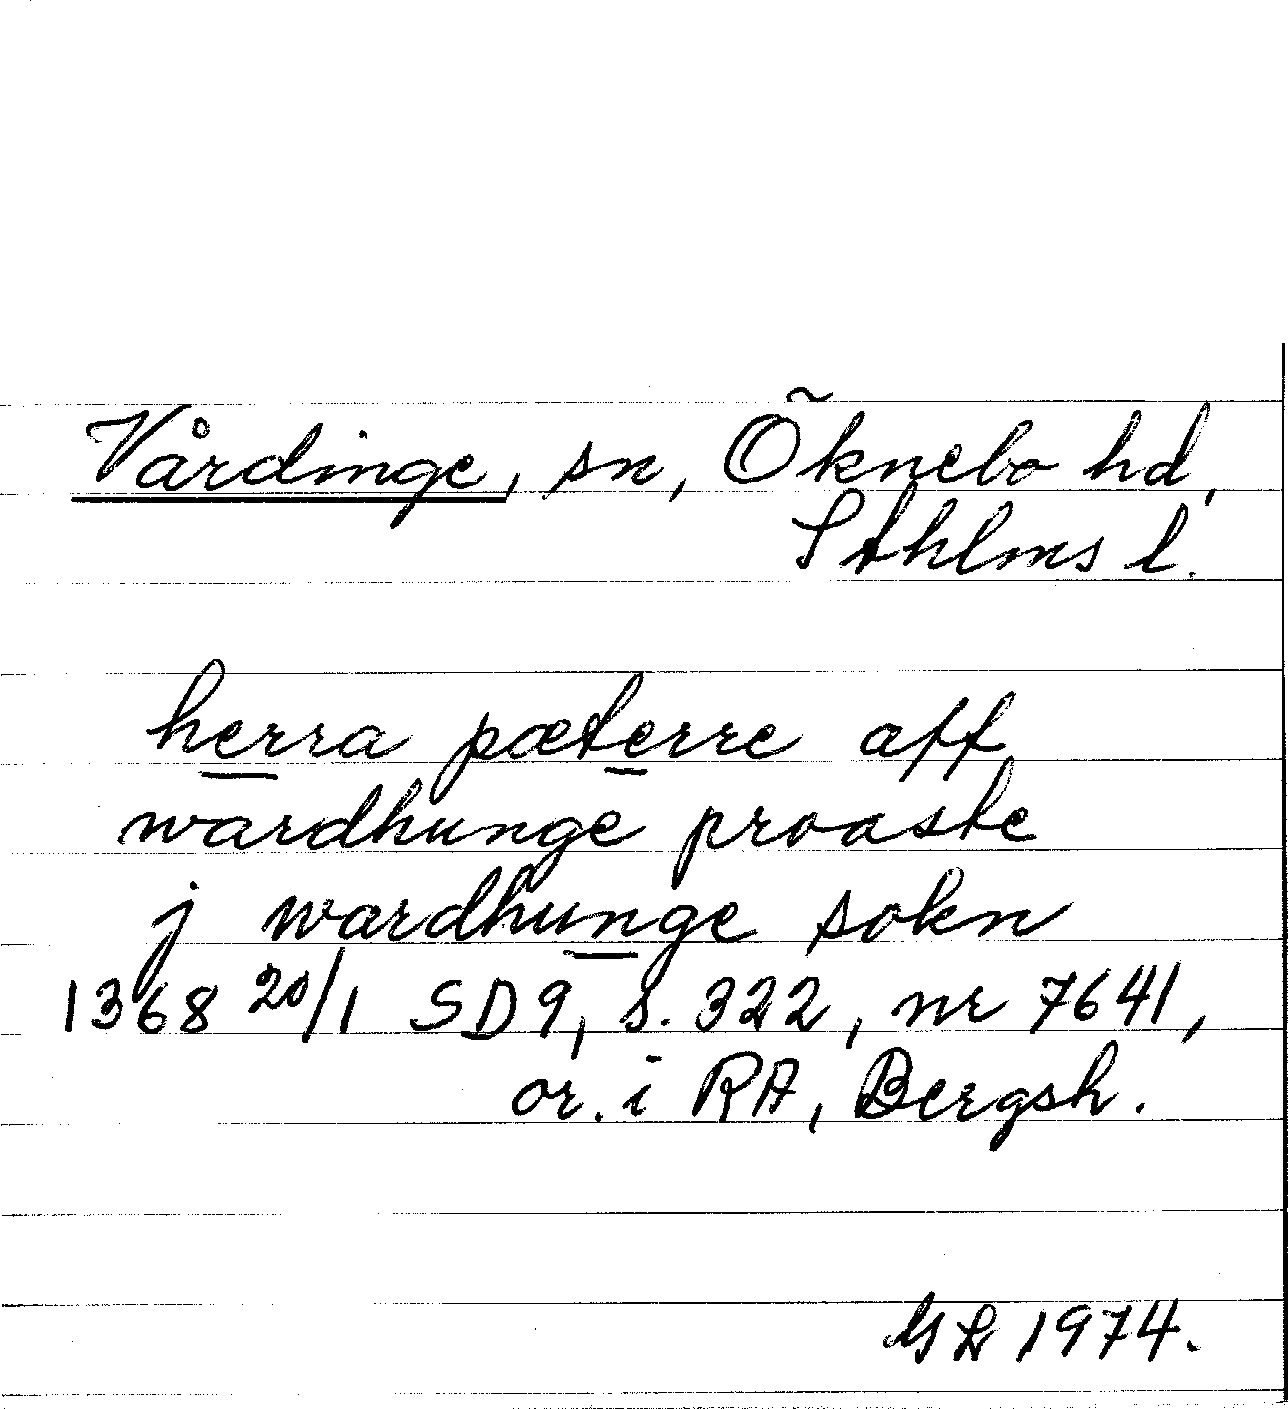 Vårdinge, sn, Öknebo hd,
Sthlms l.
herra pæterre aff
wardhunge prooste
j wardhunge sokn
1368 20/1 SD 9, s. 322, nr 7641,
or. i RA, Bergsh.
GL 1974.